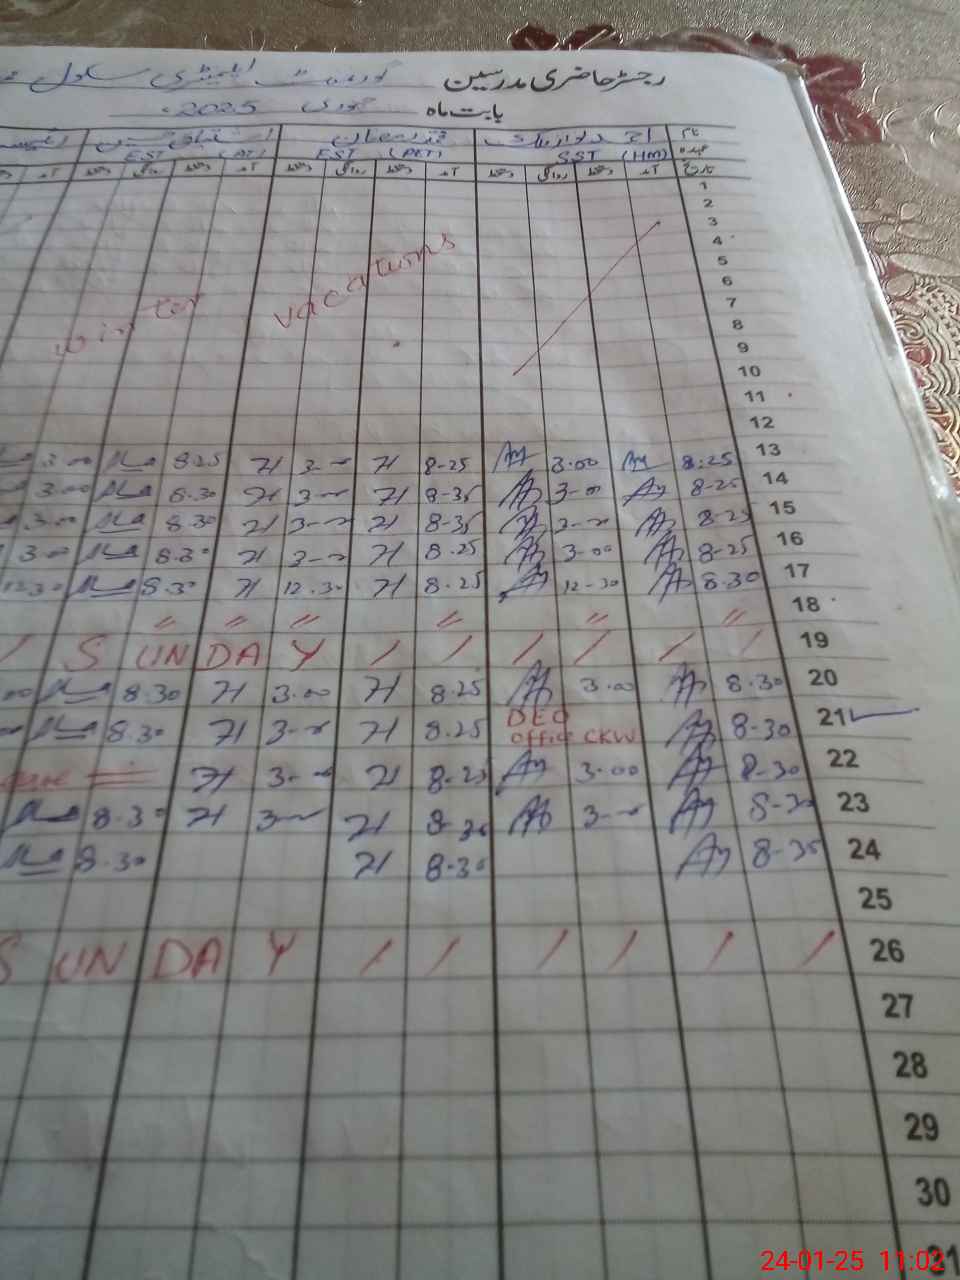 رجسٹر حاضری مدرسین گورنمنٹ ایلیمنٹری سکول
بابت ماہ جنوری 2025
نام
عہدہ SST (HM) EST (PET) EST (AT)
تاریخ آمد دستخط روانگی دستخط آمد دستخط روانگی دستخط آمد دستخط روانگی دستخط
1
2
3
4
5
6
7
8
9
10
11
12
winter vacations
13 8:25 3.00 8-25 3-00 8.25 3.00
14 8-25 3-00 8-35 3-00 8.30 3.00
15 8-25 3-00 8-35 3-00 8.30 3.00
16 8-25 3-00 8.25 3-00 8.30 3.00
17 8.30 12-30 8.25 12.30 8.30 12.30
18 〃 〃 〃 〃 〃 〃
19 SUNDAY / / / / / /
20 8.30 3.00 8.25 3.00 8.30
21 8-30 DEO office CKW 8.25 3-00 8.30
22 8-30 3.00 8-25 3-00
23 8-30 3-00 8-30 3-00 8.30
24 8-35 8-30 8.30
25
26 SUNDAY / / / / / /
27
28
29
30
31
24-01-25 11:02